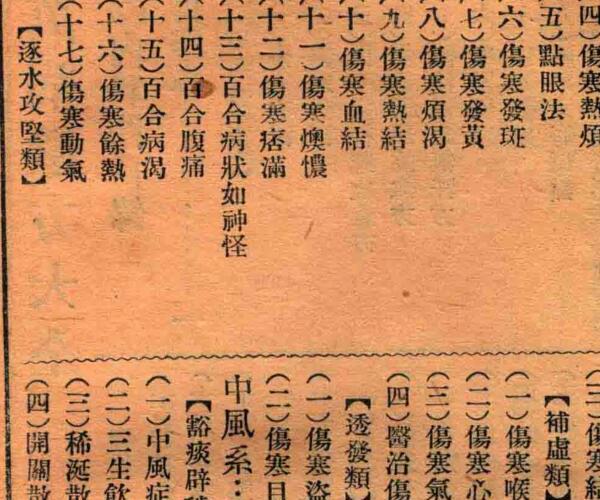 (四)傷寒熱煩
(五)點眼法
(六)傷寒發斑
(七)傷寒發黃
(八)傷寒煩渴
(九)傷寒熱結
(十)傷寒血結
(十一)傷寒燠憹
(十二)傷寒痞滿
(十三)百合病狀如神怪
(十四)百合腹痛
(十五)百合病渴
(十六)傷寒餘熱
(十七)傷寒動氣
【逐水攻堅類】
(三)傷寒
【補虛類】
(一)傷寒喉
(二)傷寒心
(三)傷寒氣
(四)醫治傷
【透發類】
(一)傷寒盜
(二)傷寒目
中風系:
【豁痰辟
(一)中風症
(二)三生飲
(三)稀涎散
(四)開關散